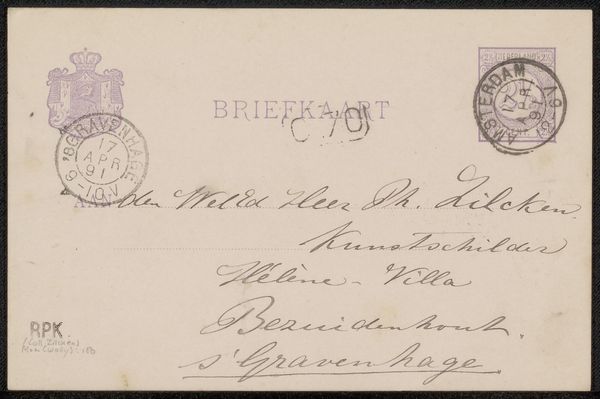 NEDERLAND
BRIEFKAART
C 70
'S GRAVENHAGE
17
APR
91
9-10V
AMSTERDAM
17
APR
91
AAN den WelEd Heer Ph. Zilcken.
Kunstschilder
Hélène-Villa
Bezuidenhout.
s'Gravenhage.
RPK.
(Coll. Zilcken)